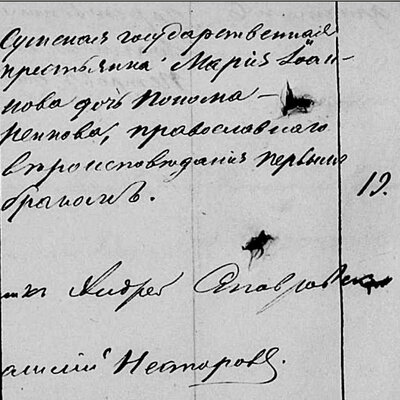 Сумская государственная
крестьянка Мария Іоан-
нова дочь Понома-
ренкова, православнаго
вѣроисповѣданія первымъ
бракомъ.
19.
Андрей
Нестеровъ.